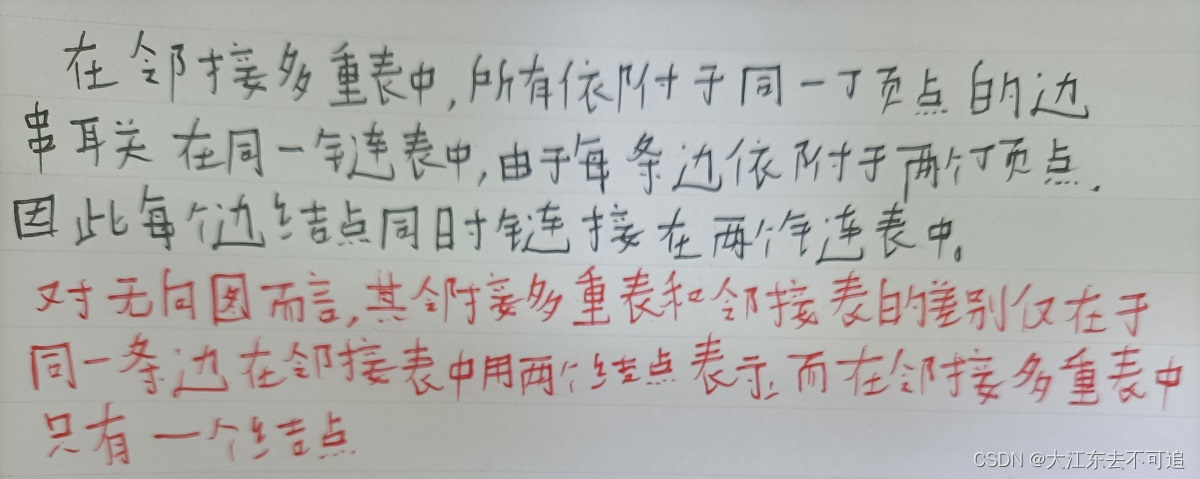 在邻接多重表中,所有依附于同一顶点的边
串联在同一链表中,由于每条边依附于两个顶点.
因此每个边结点同时链接在两个链表中。
对无向图而言,其邻接多重表和邻接表的差别仅在于
同一条边在邻接表中用两个结点表示,而在邻接多重表中
只有一个结点
CSDN @大江东去不可追